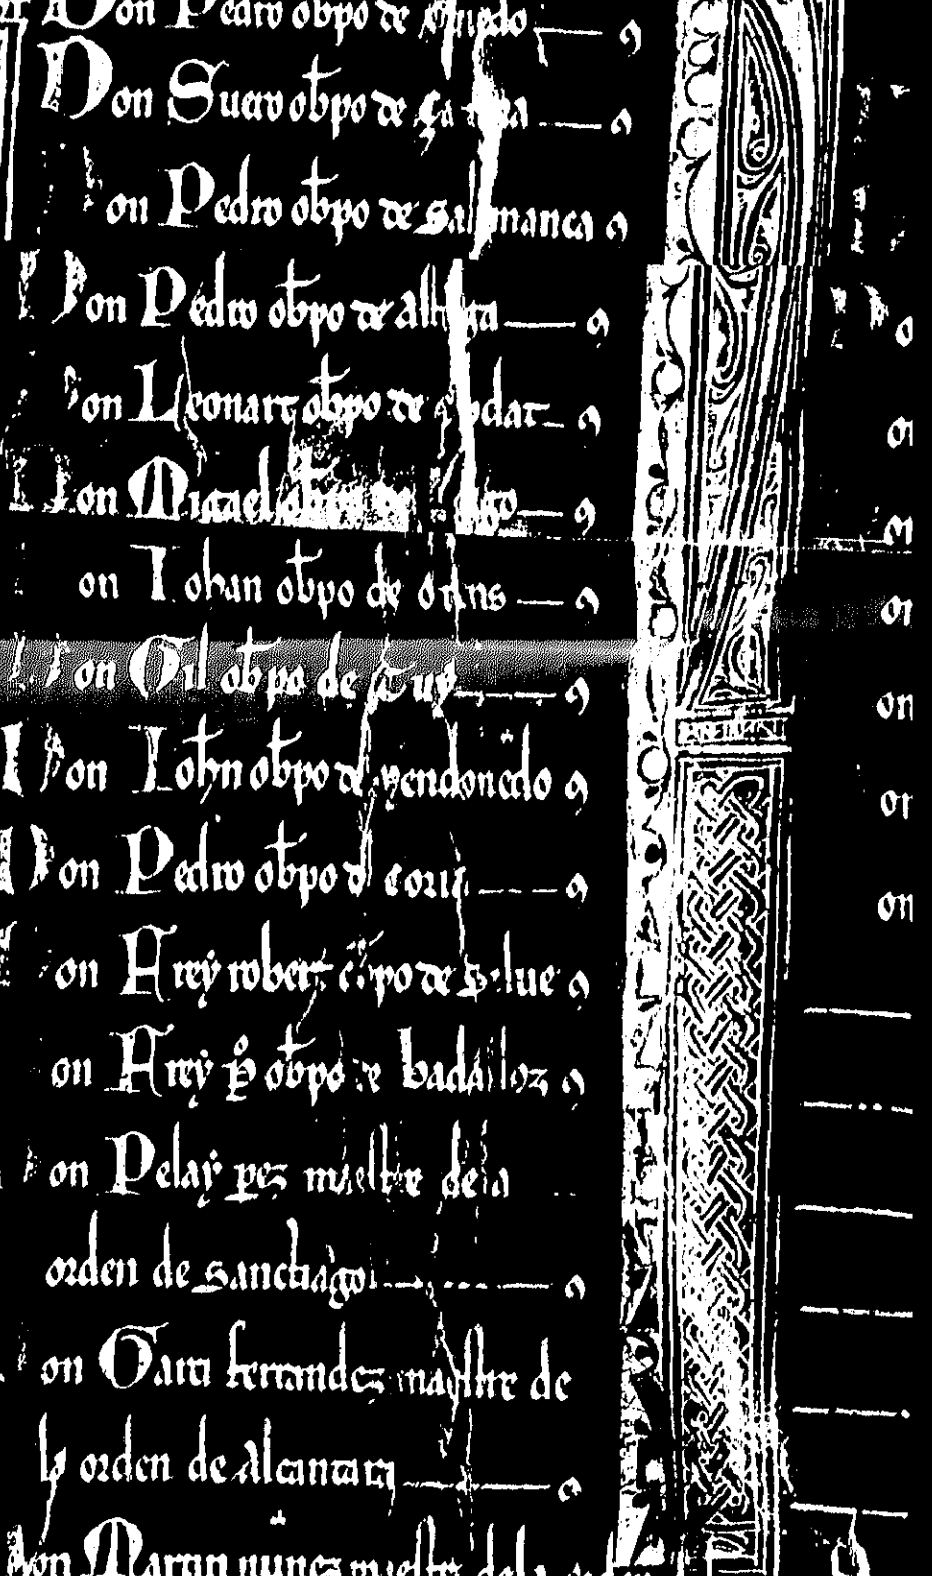 Don Pedro obpo de Ouiedo — 9
Don Suero obpo de Çamora — 9
on Pedro obpo de Salamanca 9
Don Pedro obpo de astorga — 9
on Leonart obpo de çibdat — 9
Don Migael obpo de lugo — 9
on Iohan obpo de orens — 9
Don Gil obpo de Tuy — 9
Don Iohn obpo de mendonedo 9
Don Pedro obpo d coria — 9
on Frey robert obpo de Silue 9
on Frey po obpo de badaioz 9
on Pelay pez maestre dela
orden de Sanctiago — 9
on Garci ferrandez maestre de
la orden de alcantara — 9
Don Martin nunez maestre dela orden